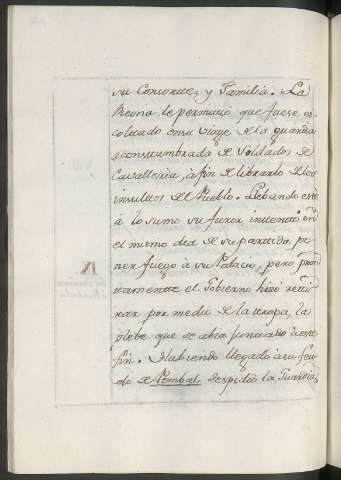 su Consorte, y Familia. La
Reina le permitió que fuese es
coltado en su viage de la guardia
acostumbrada de Soldados de
Cavalleria, à fin de librarlo de los
insultos del Pueblo. Llebando este
à lo sumo su furor, intentó en
el mismo dia de su partida po
ner fuego à su Palacio, pero pron
tamente el Gobierno hizó reti
rar por medio de la tropa, la
plebe que se abia juntado à este
fin. Habiendo llegado à su feu
do de Pombal despidió la Guardia,